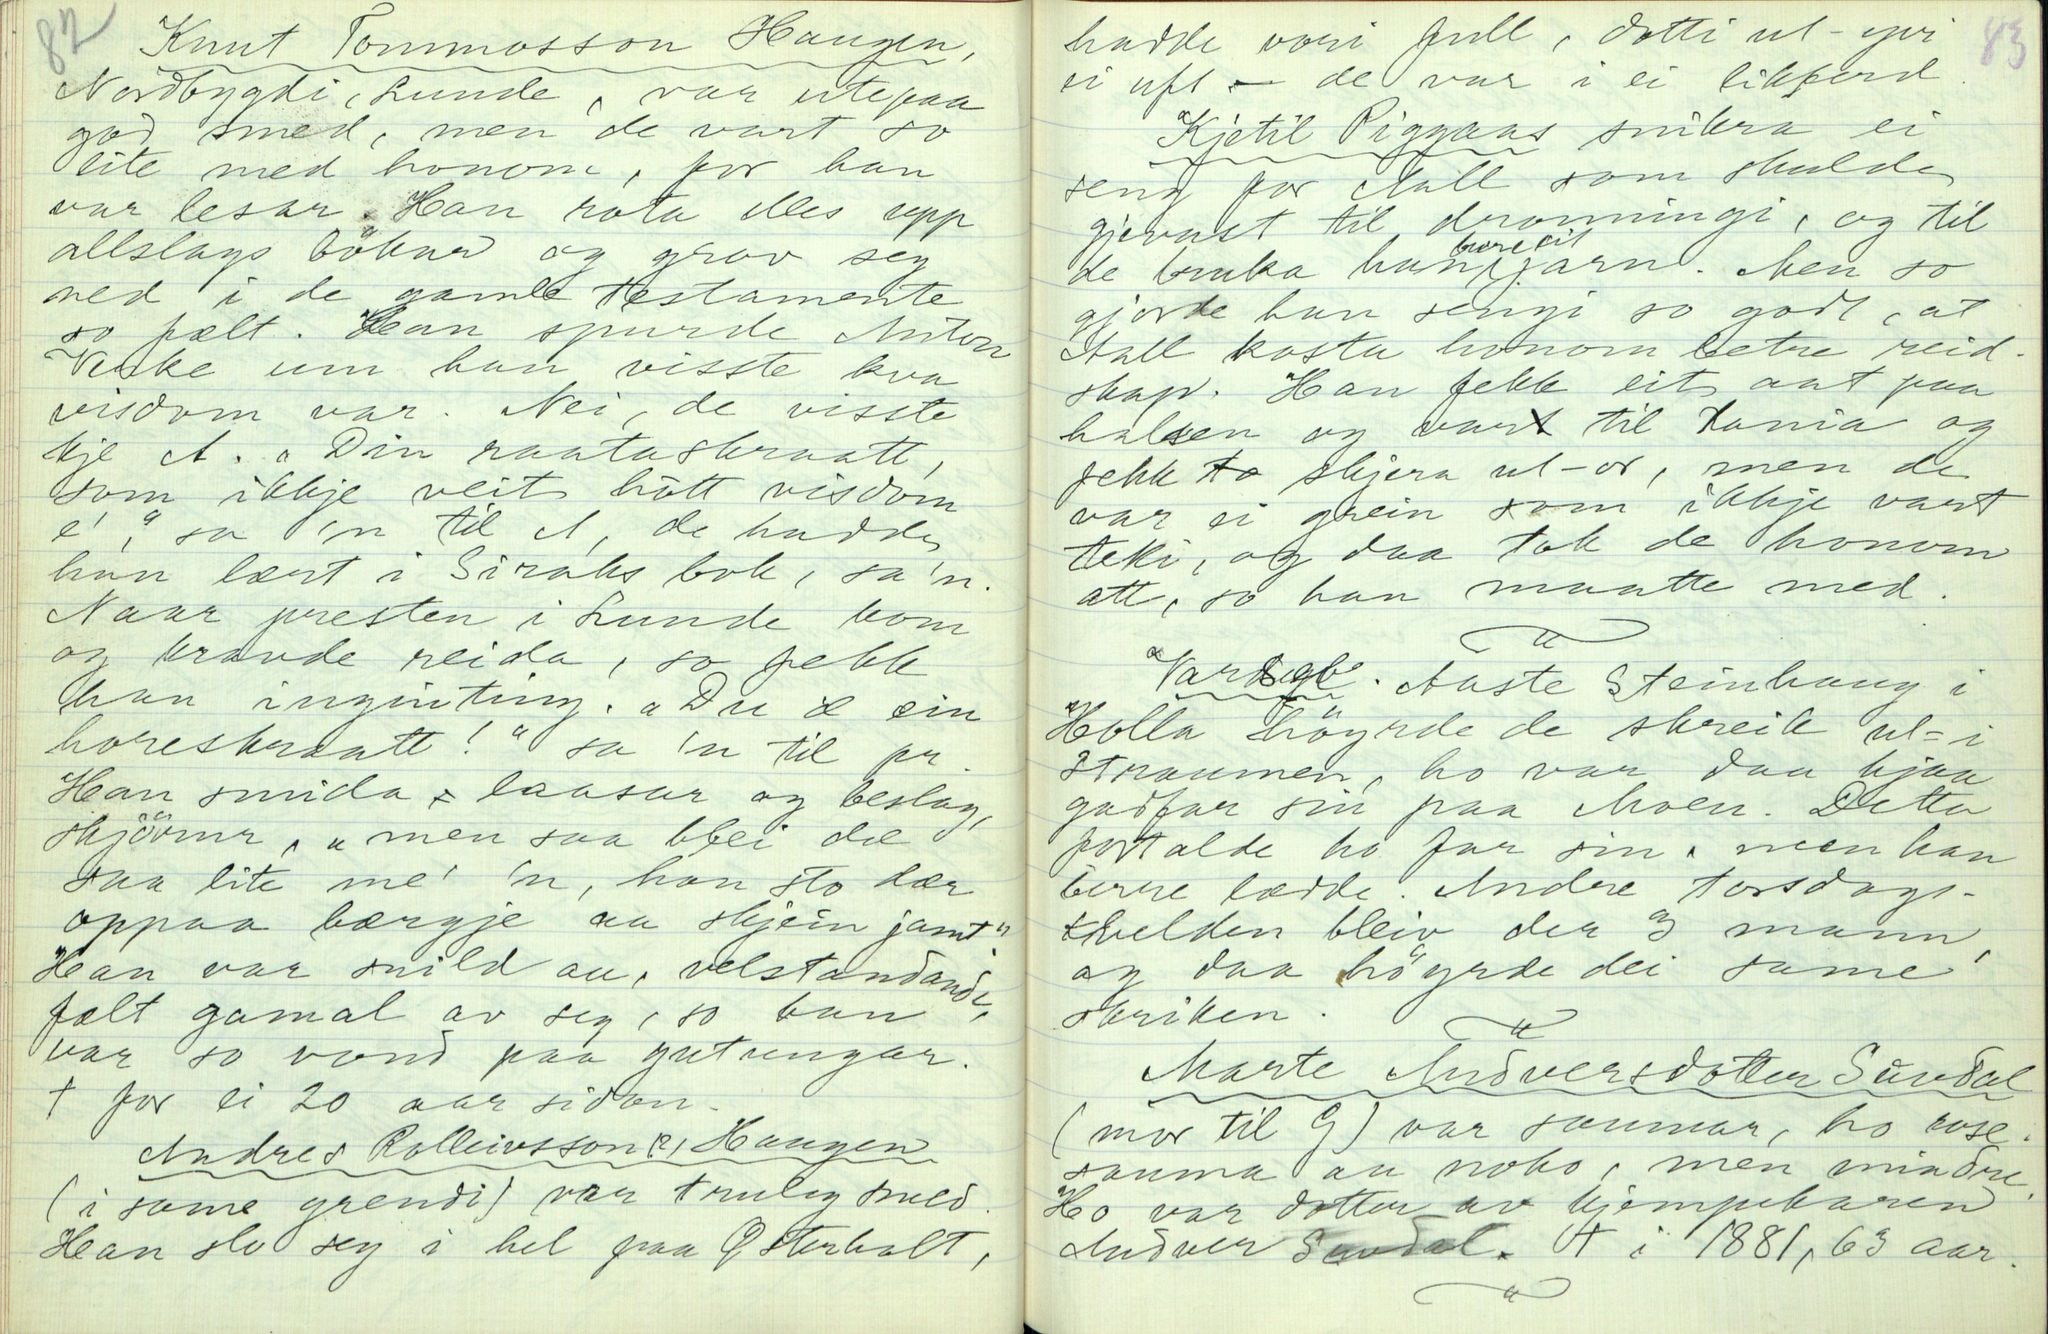 82
Knut Tommosson Haugen,
Nordbygdi, Lunde, var utepaa
god smed, men de vart so
lite med honom, for han
var lesar. Han rota elles upp
allslags bøkar og grov seg
ned i de gamle testamente
so fælt. Han spurde Anton
Veske um han visste kva
visdom var. Nei, de visste
kje A. "Din raataskraatt,
som ikkje veit hått visdom
e'," sa 'n til A, de hadde
han lært i Siraks bok, sa'n.
Naar presten i Lunde kom
og kravde reida, so fekk
han inginting. "Du æ ein
horeskraatt!" sa 'n til pr.
Han smida laasar og beslag,
skjønnr, "men saa blei dæ
saa lite me' 'n, han sto dær
oppaa bærgje aa skjein jamt"
Han var snild au, velstandande,
fælt gamal av seg, so han
var so vond paa gutungar.
† for ei 20 aar sidan.
Andres Rolleivsson(?) Haugen
(i same grendi) var truleg smed.
Han slo seg i hel paa Østerholt,
83
hadde vori full, dotti ut-yvi
ei uft – de var i ei likferd.
Kjetil Piggaas snikra ei
seng for Aall som skulde
gjevast til dronningi, og til
de bruka han berre eit jarn. Men so
gjorde han sengi so godt, at
Aall kosta honom betre reid-
skap. Han fekk eit aat paa
halsen og var til Kania og
fekk skjera ut-or, men de
var ei grein som ikkje vart
teki, og daa tok de honom
att, so han maatte med.
Vardøgle. Aaste Steinhaug i
Holla høyrde de skreik ut-i
Straumen, ho var daa hjaa
godfar sin paa Moen. Detta
fortalde ho far sin, men han
berre lædde. Andre torsdags-
kvelden bleiv der 3 mann,
og daa høyrde dei same
skriken.
Marte Andversdotter Suvdal
(mor til G) var saumar, ho rose-
sauma au noko, men mindre.
Ho var dotter av kjempekaren
Andver Suvdal. † i 1881, 63 aar.